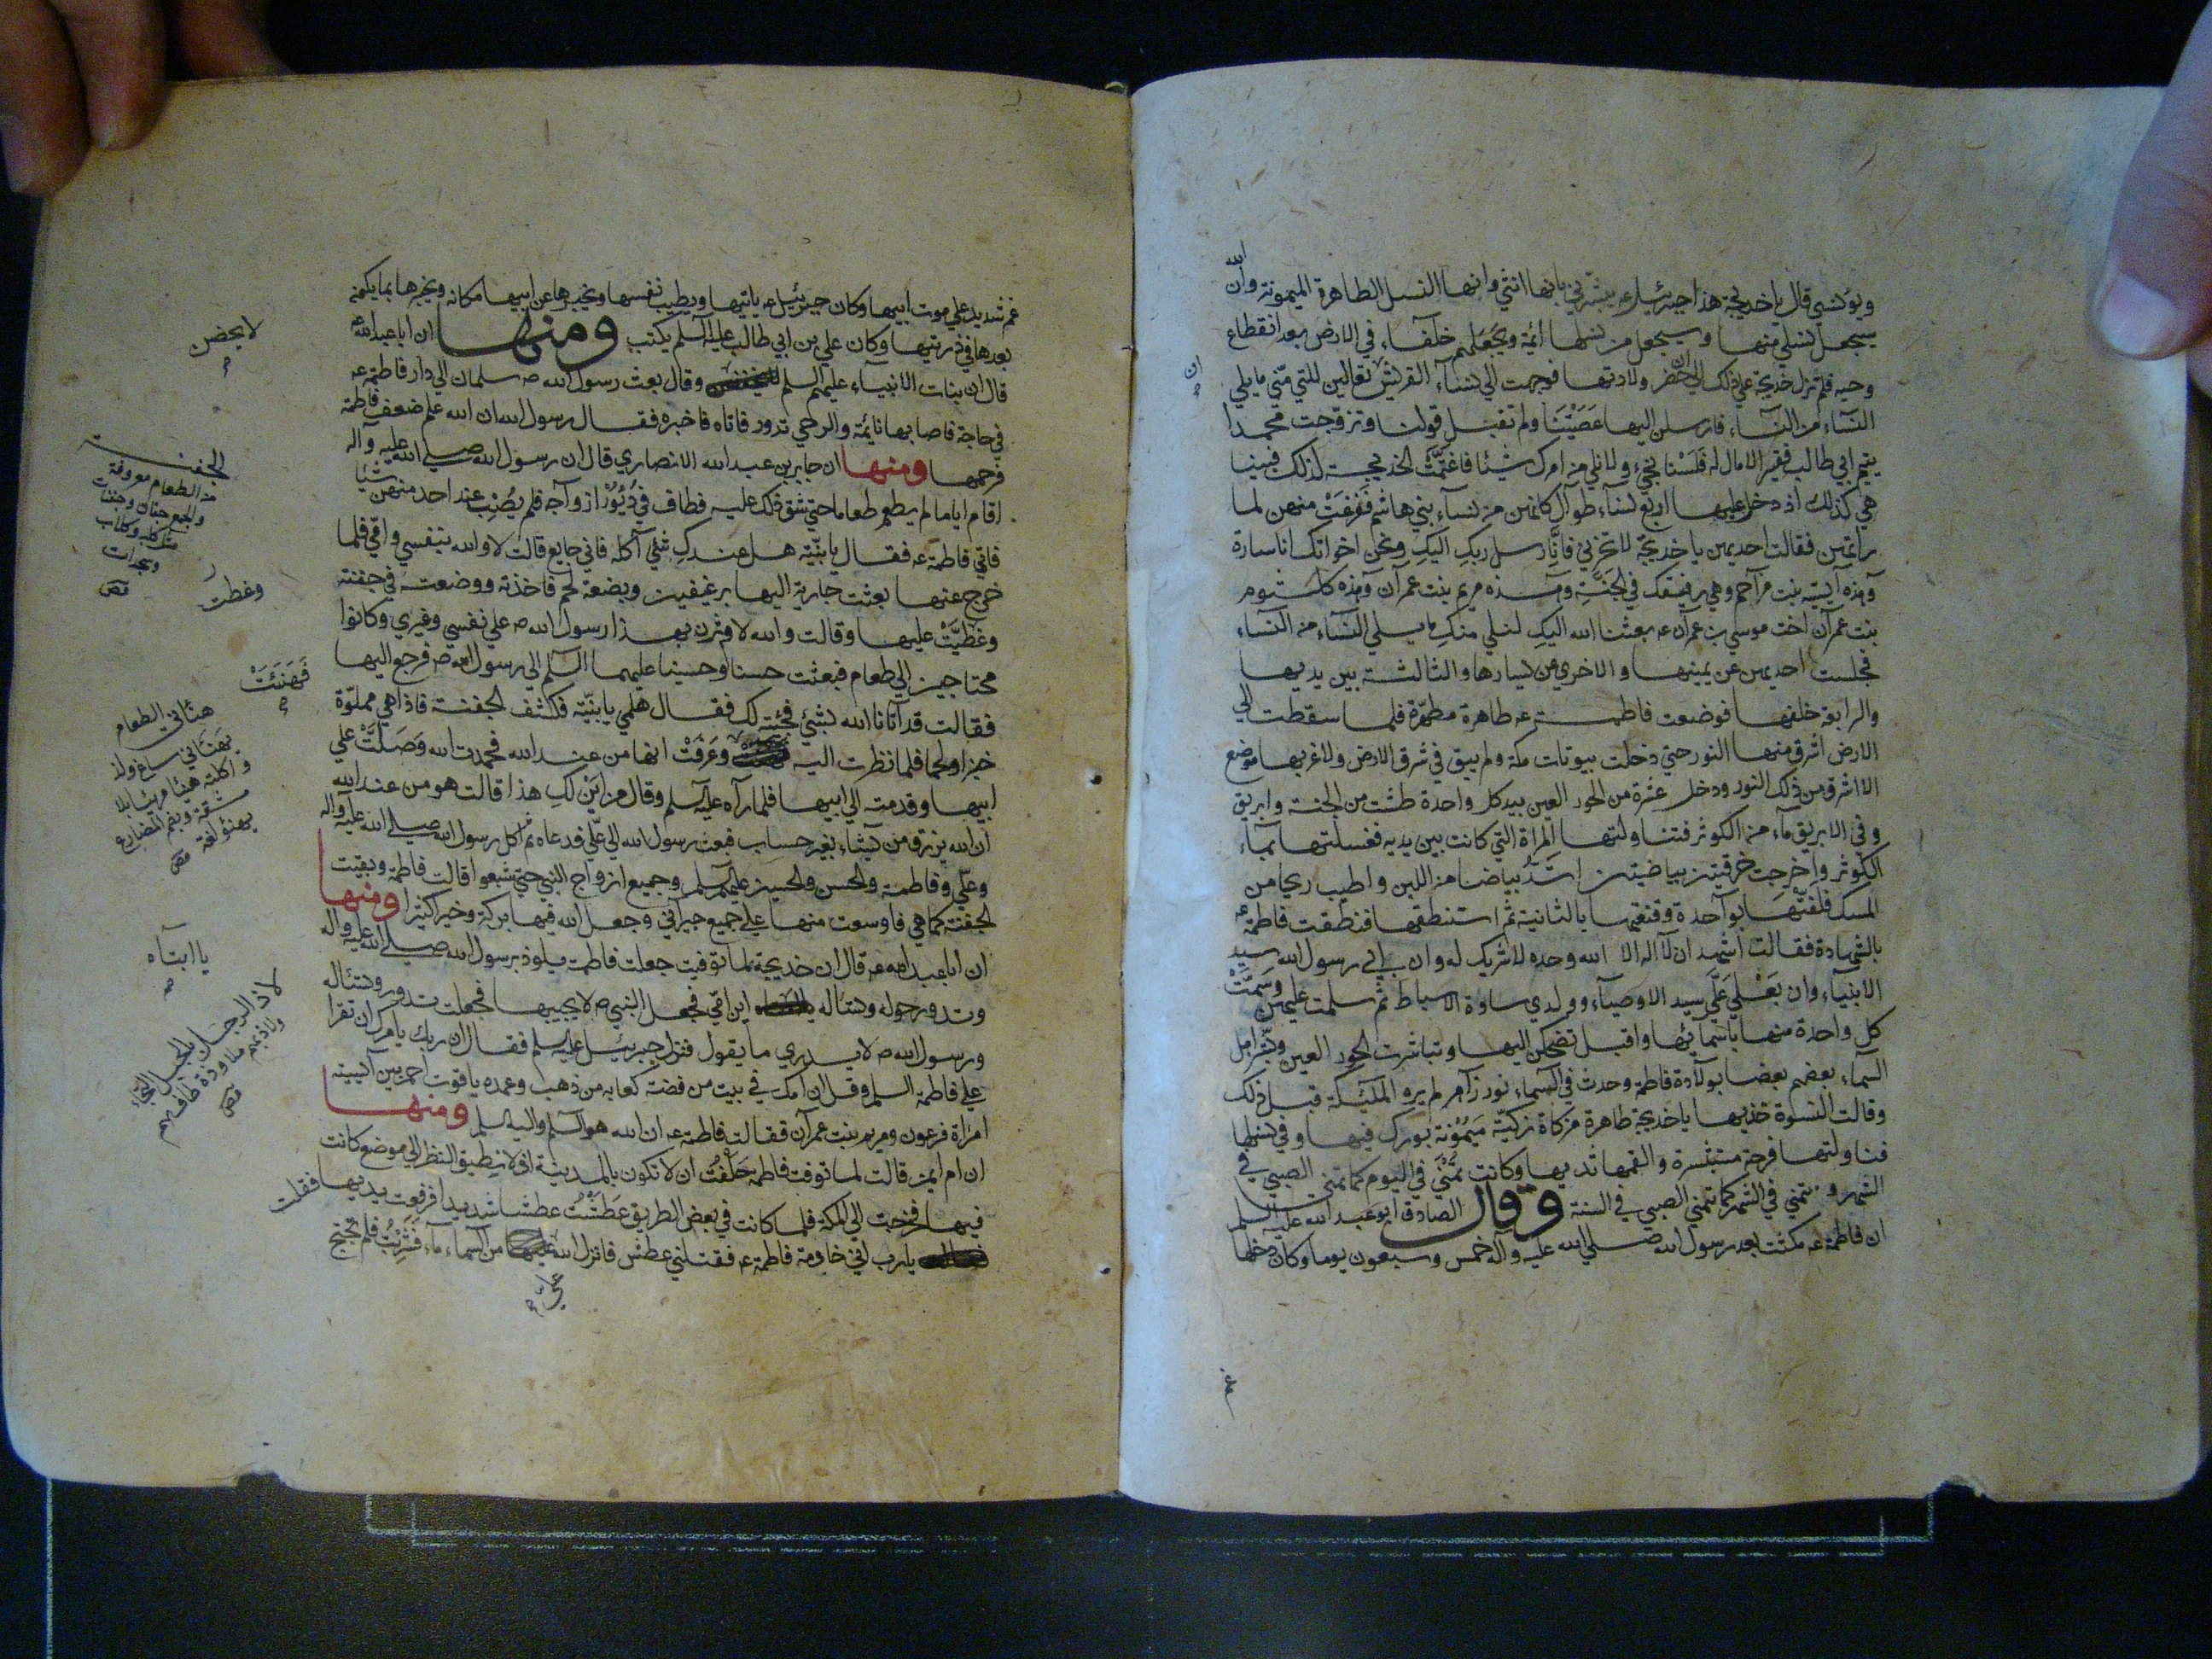 ويؤنسني قال يا خديجة هذا جبرئيل عه يبشرني بانها انثي وانها النسل الطاهرة الميمونة وان الله
سيجعل نسلي منها وسيجعل من نسلها ائمة ويجعلهم خلفاء في الارض بعد انقطاع
وحيه فلم تزل خديجة علي ذلك الي ان حضر ولادتها فوجهت الي نساء القريش تعالين للتي مني ما يلي
النساء من النساء فارسلن اليها عَصَيْتَنا ولم تقبل قولنا وتزوجت محمدا
يتيم ابي طالب فقير الا مال له فَلَسْنا نجيء ولا نلي من امرك شئا فاغتمت الخديجة لذلك فبينا
هي كذلك اذ دخل عليها اربع نساء طوال كانهن من نساء بني هاشم فَفَزِعَتْ منهن لما
راتهن فقالت احديهن يا خديجة لا تحزني فانا رسل ربكِ اليكِ ونحن اخواتك انا سارة
وهذه آسية بنت مزاحم وهي رفيقتك في الجَنَّة وهذه مريم بنت عمران وهذه كلثوم
بنت عمران اخت موسي بن عمران عه بعثنا الله اليكِ لنلي منكِ ما يلي النساء من النساء
فجلست احديهن عن يمينها والاخري من يسارها والثالثة بين يديها
والرابعة خلفها فوضعت فاطمة عه طاهرة مطهرة فلما سقطت الي
الارض اشرق منها النور حتي دخلت بيوتات مكة ولم يبق في شرق الارض ولا غربها موضع
الا اشرق من ذلك النور ودخل عشرة من الحور العين بيد كل واحدة طشت من الجنة وابريق
وفي الابريق ماء من الكوثر فتناولتها المراة التي كانت بين يديه فغسلتها بماء
الكوثر واخرجت خرقتين بياضيتين اشَدُّ بياضنا من اللبن واطيب ريحا من
المسك فَلَفَّتْهَا بواحدة وقنعتها بالثانية ثم استنطقها فنطقت فاطمة عه
بالشهادة فقالت اشهد ان لا اله الا الله وحده لا شريك له وان ابي رسول الله سيد
الانبياء وان بَعْلي عَلَّي سيد الاوصياء وولدي سادة الاسباط ثم سلمت عليهن وسَمَّتْ
كل واحدة منها باسمائها واقبل تضحكن اليها وتباشرت الحور العين وبشر اهل
السماء بعضهم بعضا بولادة فاطمة وحدث في السماء نور زاهر لم يره الملئكة قبل ذلك
وقالت النسوة خذيها يا خديجة طاهرة مزكاة زكية مَيْمُوْنة بورك فيها وفي نسلها
فناولتها فرحة مستبشرة والقمها ثديها وكانت تمني في اليوم كما تمني الصبي في
الشهر و تمني في الشهر كما تمني الصبي في السنة وقال الصادق ابو عبد الله عليه السلم
ان فاطمة عه مكثت بعد رسول الله صلي الله عليه واله خمس وسبعون يوما وكان دخلها
ان
غم شديد علي موت ابيها وكان جبرئيل عه ياتيها ويطيب نفسها ويخبرها عن ابيها مكانه ويخبرها بما يكون
بعدها في ذريتها وكان علي بن ابي طالب عليه السلم يكتب ومنها ان ابا عبد الله عه
قال ان بنات الانبياء عليهم السلم وقال بعث رسول الله ص سلمان الي دار فاطمة عه
في حاجة فاصابها نائمة والرحي تدور فاتاه فاخبره فقال رسول الله ان الله علم ضعف فاطمة
فرحمها ومنها ان جابر بن عبد الله الانصاري قال ان رسول الله صلي الله عليه واله
اقام اياما لم يطعم طعاما حتي شق ذلك عليه فطاف في دُيُوْر ازواجه فلم يُصْنِب عند احد منهن شيئا
فاتي فاطمة عه فقال يا بنيّة هل عندكِ شئي آكله فاني جايع قالت لا والله بنفسي وامي فلما
خرج عنها بعثت جارية اليها برغيفين وبضعة لحم فاخذته ووضعت في جفنة
وغَطَّيَتْ عليها وقالت والله لاوثرن بهذا رسول الله ص علي نفسي وغيري وكانوا
محتاجين الي طعام فبعثت حسنا وحسينا عليهما السلم الي رسول الله ص فرجع اليها
فقالت قد آتانا الله بشئي فخبئته لك فقال هلمي يا بنيّة فكشف الجفنة فاذا هي مملوّة
خبزا ولحما فلما نظرت اليه وعَرَفَتْ انها من عند الله فحمدت الله وَصَلَّتْ علي
ابيها وقدمته الي ابيها فلما رآه عليه السلم وقال من ايْنَ لكِ هذا قالت هو من عند الله
ان الله يرزق من يشاء بغير حساب فبعث رسول الله الي علّي فدعاه ثم اكل رسول الله صلي الله عليه واله
وعلّي وفاطمة والحسن والحسين عليهم السلم وجميع ازواج النبي حتي شبعوا قالت فاطمة وبقيت
الجفنة كما هي فاوسعت منها علي جميع جيراني وجعل الله فيها بركة وخيرا كثيرا ومنها
ان ابا عبد الله عه قال ان خديجة لما توفيت جعلت فاطمة يلوذ برسول الله صلي الله عليه واله
وتدور حوله وتسئاله اين امي فجعل النبي ص لا يجيبها فجعلت تدور وتسئاله
ورسول الله ص لا يدري ما يقول فنزل جبرئيل عليه السلم فقال ان ربك يامرك ان تقرا
علي فاطمة السلم وقل ان امك في بيت من قصبة كعابه من ذهب وعمده ياقوت احمر بين آسية
امراة فرعون ومريم بنت عمران فقالت فاطمة عه ان الله هو السلم واليه السلم ومنها
ان ام ايمن قالت لما توفت فاطمة حَلَفْتُ ان لا تكون بالمدينة اذ لا تطيق النظر الي موضع كانت
فيها فخرجت الي المكة فلما كانت في بعض الطريق عَطَشْتُ عطشا شديدا فرفعت يديها فقلت
يا رب اني خادمة فاطمة عه فقتلني عطش فانزل الله من السماء ماء فَشَرِبْتُ فلم تحتج
علي
لا يحضن
الجفنة
من الطعام معروفة
والجمع جفان وجفنات
مثل كلبة وكلاب
وسجدات
وغطت
فَهَنَئَتْ
هنّاني الطعام
يهنّاني ساغ ولذ
واكلته هنيئا مريئا بلا
مشقة وبضم المضارع
يهنؤ لغة
يا ابتاه
لاذ الرجل بالجبل التجاء
ولاذ بهم ملاوذة طاف بهم